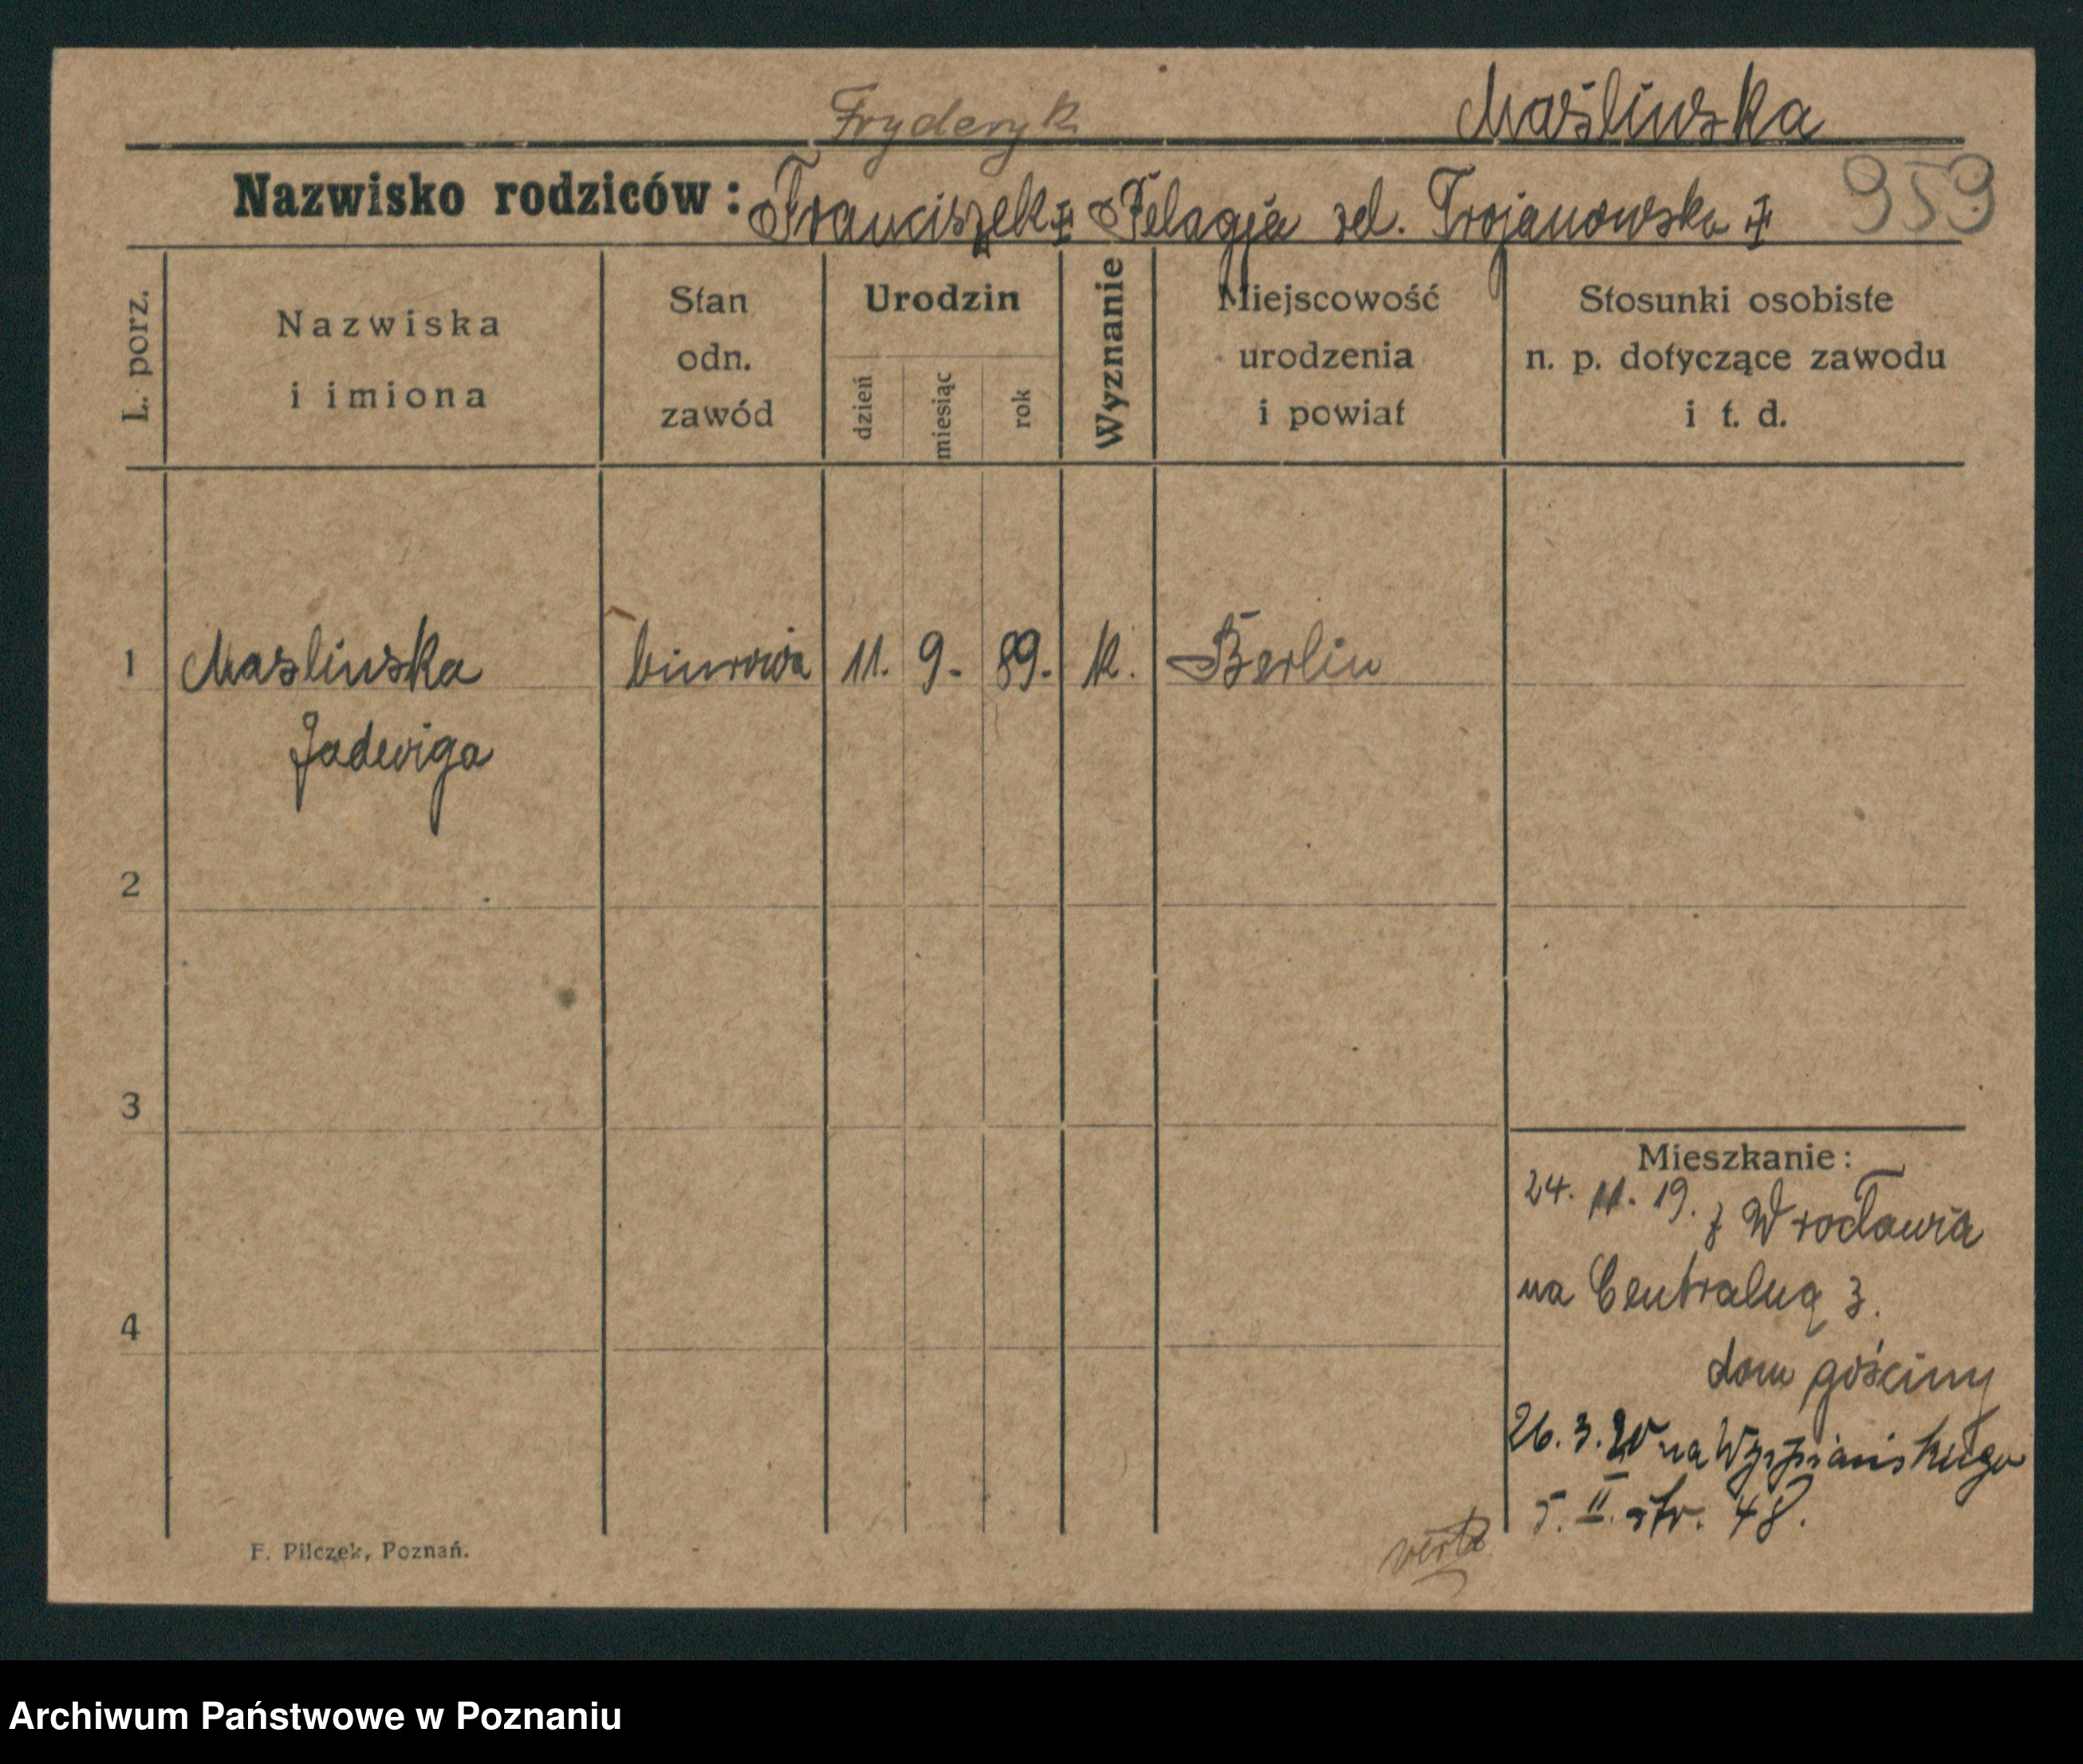 Fryderyk Maślińska
Nazwisko rodziców: Franciszek ‡ Pelagja zd. Trojanowska ‡ 959
L. porz.
Nazwiska
i imiona
Stan
odn.
zawód
Urodzin
dzień
miesiąc
rok
Wyznanie
Miejscowość
urodzenia
i powiat
Stosunki osobiste
n. p. dotyczące zawodu
i t. d.
1 Maslinska biurowa 11. 9. 89. k. Berlin
Jadwiga
2
3
4
Mieszkanie:
24. 11. 19. z Wrocławia
na Centralną 3.
dom gościnny
26. 3. 20 na Wyspiańskiego
5. II. str. 48.
verte
F. Pilczek, Poznań.
Archiwum Państwowe w Poznaniu